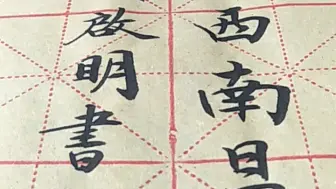 西南
啟明書